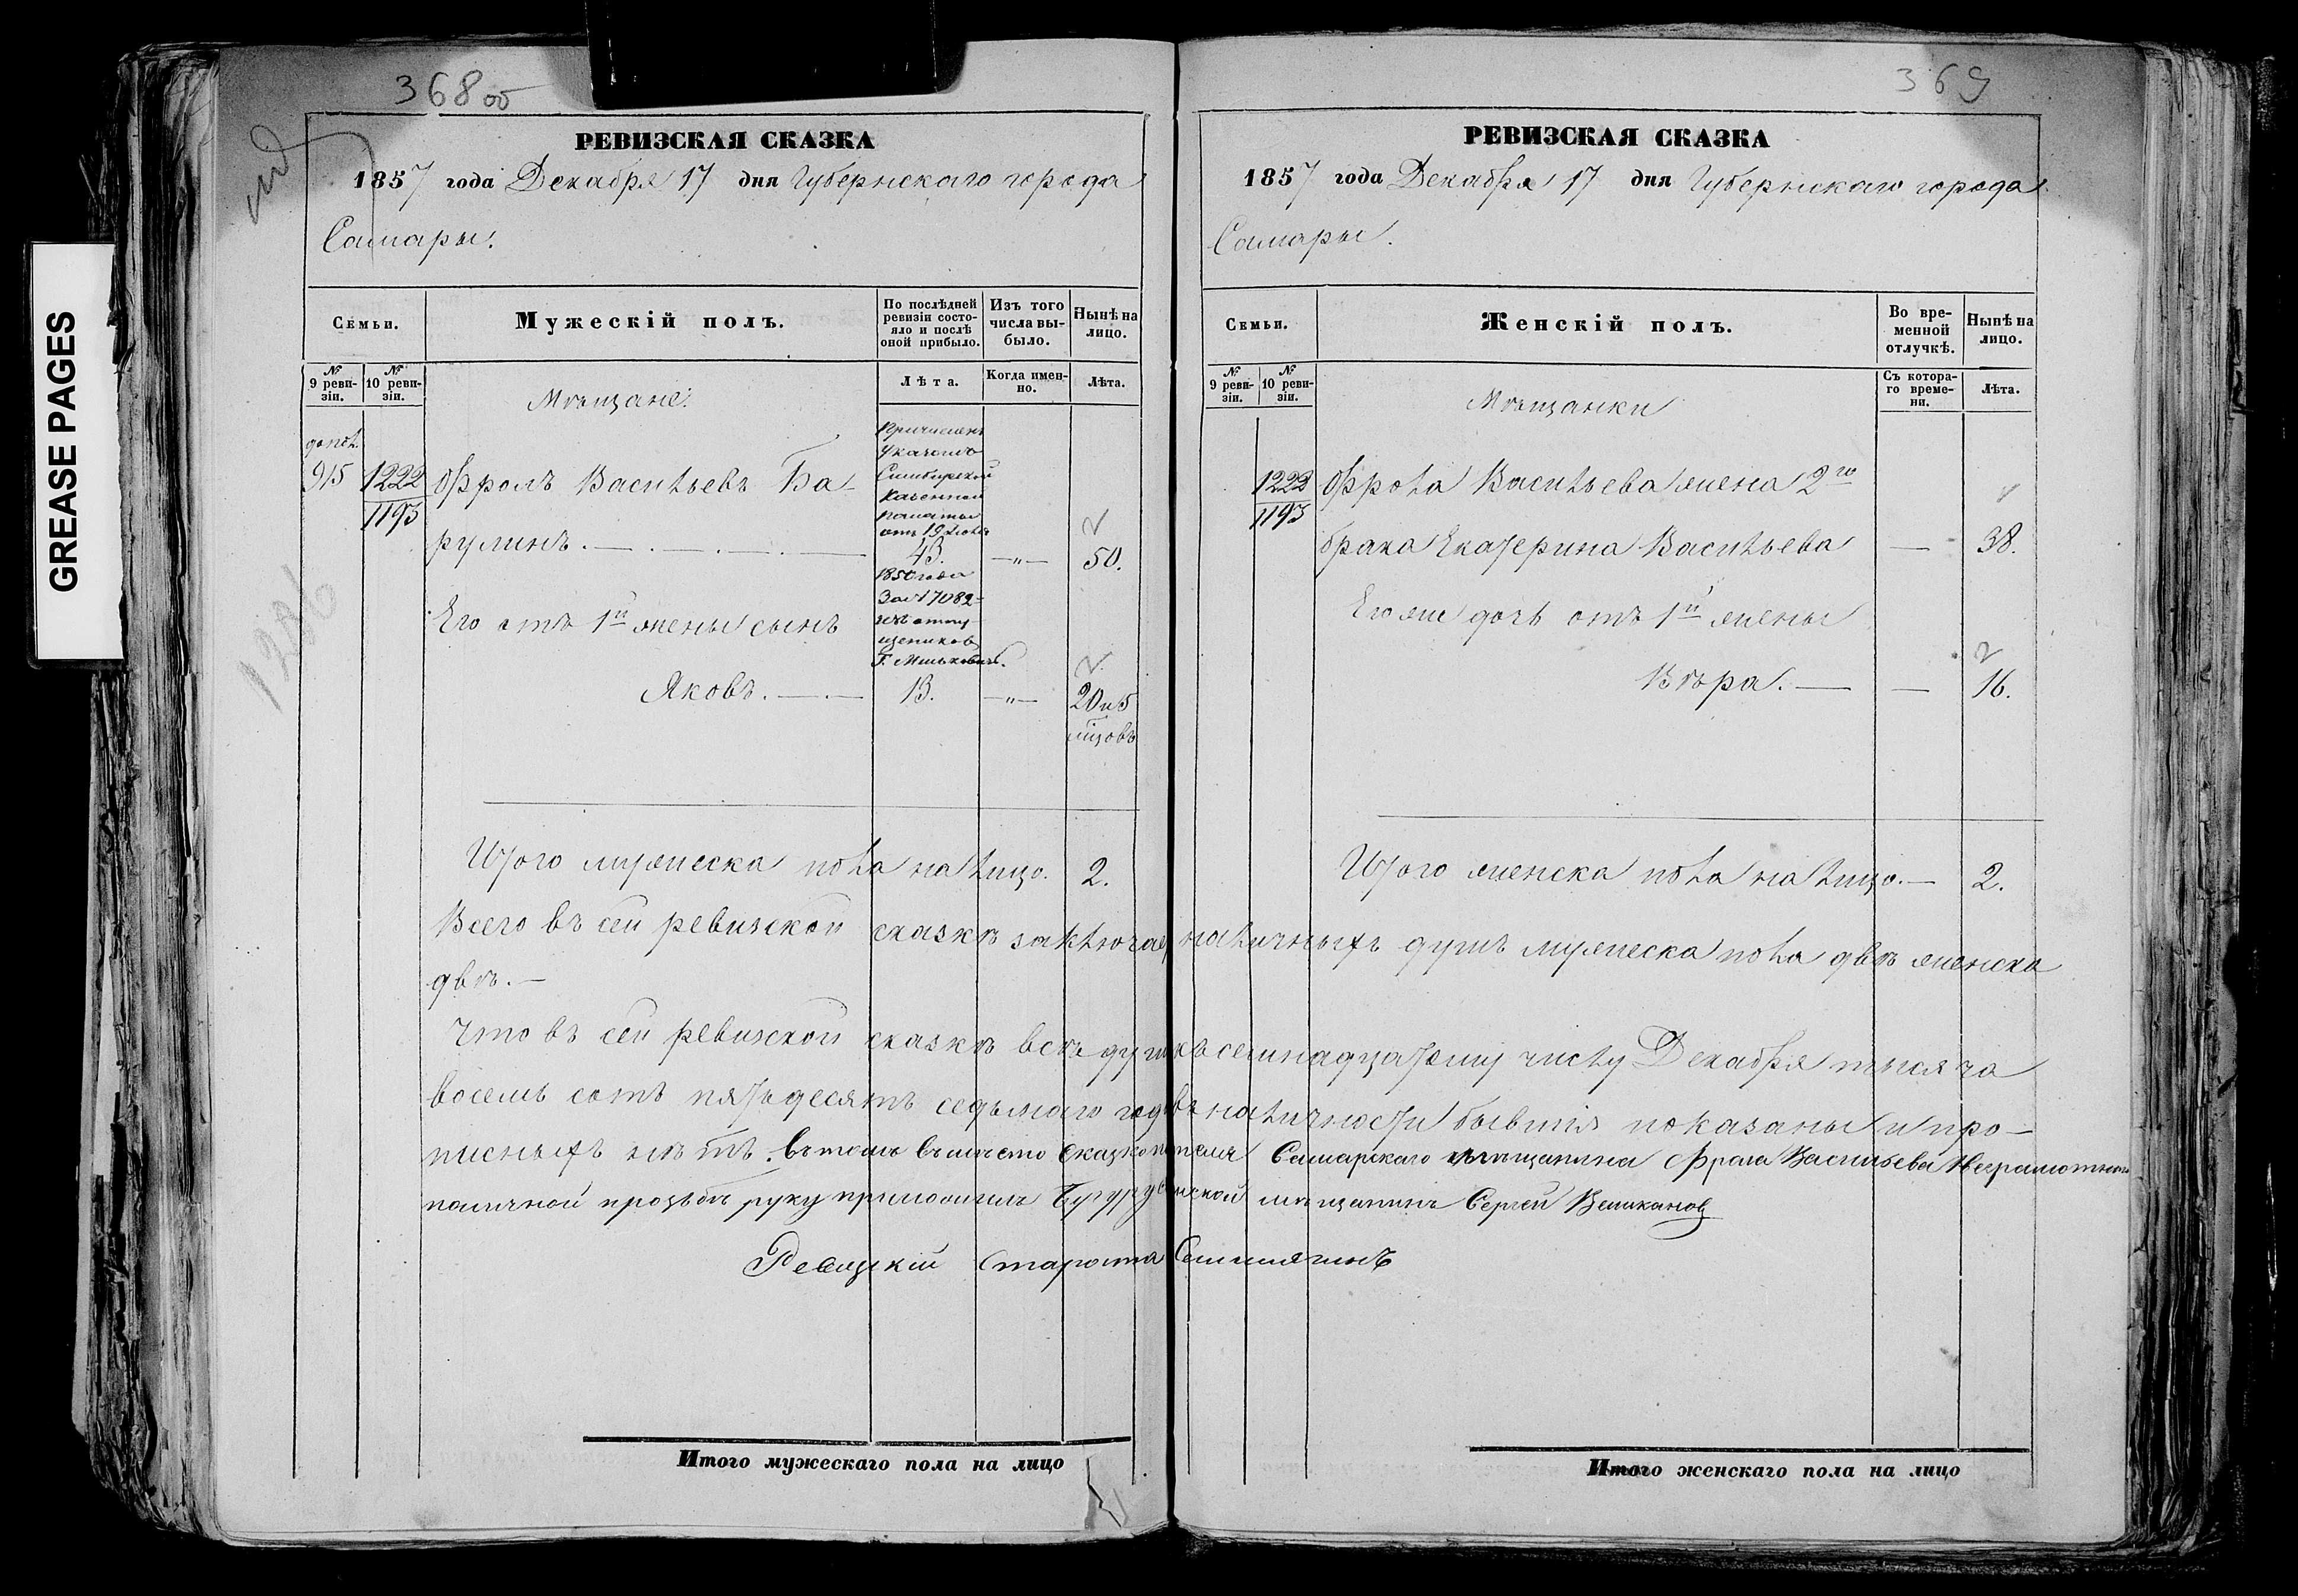 GREASE PAGES
368 об
РЕВИЗСКАЯ СКАЗКА
1857 года Декабря 17 дня Губернскаго города
Самары.
Семьи.
Мужескій полъ.
По послѣдней ревизіи состояло и послѣ оной прибыло.
Изъ того числа выбыло.
Нынѣ на лицо.
№ 9 ревизіи.
№ 10 ревизіи.
Лѣта.
Когда именно.
Лѣта.
Мѣщане.
допол.
Причисленъ
Указомъ
Симбирской
Казенной
палаты
отъ 19 Июля
1850 года
За № 17082
915 1222 Фролъ Васильевъ Ба-
1193
рулинъ. 43. —"— 50.
Его отъ 1й жены сынъ
Яковъ. 13. —"— 20 и 5
мѣсцовъ
1236
Итого мужеска пола на лицо. 2.
369
РЕВИЗСКАЯ СКАЗКА
1857 года Декабря 17 дня Губернскаго города
Самары.
Семьи.
Женскій полъ.
Во временной отлучкѣ.
Нынѣ на лицо.
№ 9 ревизіи.
№ 10 ревизіи.
Съ котораго времени.
Лѣта.
Мѣщанки
1222 Фрола Васильева жена 2го
1193
брака Екатерина Васильева — 38.
Его же дочь отъ 1й жены
Вѣра. — — 16.
Итого женска пола на лицо. — 2.
Всего въ сей ревизской сказкѣ заключае наличныхъ душъ мужеска пола двѣ женска
двѣ. —
Что въ сей ревизской сказкѣ всѣ души къ семнадцатому числу Декабря тысяча
восемь сотъ пятьдесятъ седьмаго года въ наличности бывшія показаны и про-
писныхъ нѣтъ. въ томъ вмѣсто сказкоподателя Самарскаго мѣщанина Фрола Васильева Неграмотнаго
по личной прозьбѣ руку приложилъ Бугурусланской мѣщанинъ Сергей Великановъ
Ревизскій Староста
Итого мужескаго пола на лицо
Итого женскаго пола на лицо